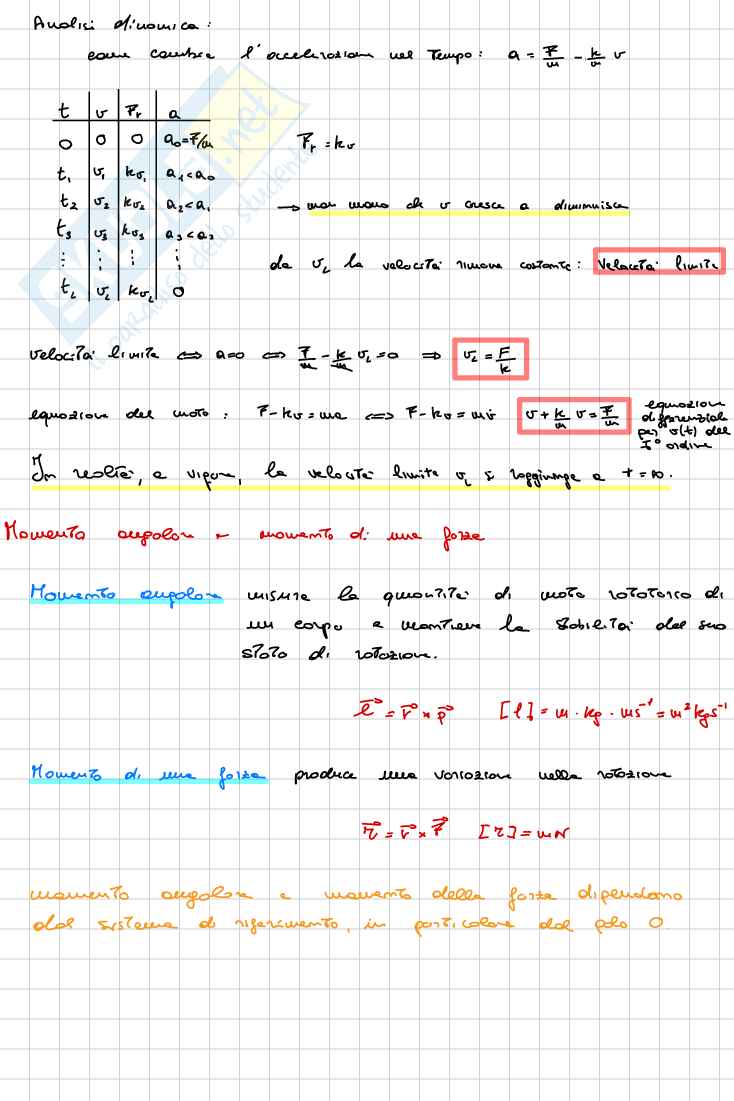 Analisi dinamica:
come cambia l'accelerazione nel tempo: a = F/m - k/m v
t | v | Fr | a
0 | 0 | 0 | a₀=F/m
Fr = kv
t₁ | v₁ | kv₁ | a₁<a₀
t₂ | v₂ | kv₂ | a₂<a₁
→ man mano che v cresce a diminuisce
t₃ | v₃ | kv₃ | a₃<a₂
⋮ | ⋮ | ⋮ | ⋮
da v_L la velocità rimane costante: velocità limite
t_L | v_L | kv_L | 0
velocità limite ⇔ a=0 ⇔ F/m - k/m v_L = 0 ⇒ v_L = F/k
equazione del moto: F-kv=ma ⇔ F-kv=mv̇
v̇ + k/m v = F/m
equazione
differenziale
per v(t) del
I° ordine
In realtà, a rigore, la velocità limite v_L si raggiunge a t=∞.
Momento angolare e momento di una forza
Momento angolare misura la quantità di moto rotatorio di
un corpo e mantiene la stabilità del suo
stato di rotazione.
l⃗ = r⃗ × p⃗ [l] = m · kg · ms⁻¹ = m² kg s⁻¹
Momento di una forza produce una variazione nella rotazione
τ⃗ = r⃗ × F⃗ [τ] = mN
momento angolare e momento della forza dipendono
dal sistema di riferimento, in particolare dal polo O